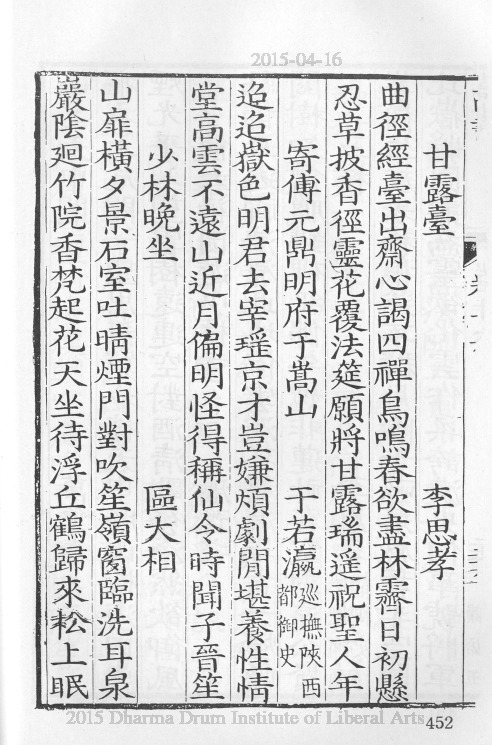 2015-04-16
甘露臺 李思孝
曲徑經臺出齋心謁四禪鳥鳴春欲盡林霽日初懸
忍草披香徑靈花覆法筵願將甘露瑞遥祝聖人年
寄傅元鼎明府于嵩山 于若瀛 巡撫陝西都御史
迢迢嶽色明君去宰瑶京才豈嫌煩劇閒堪養性情
堂高雲不遠山近月偏明怪得稱仙令時聞子晉笙
少林晩坐 區大相
山扉橫夕景石室吐晴煙門對吹笙嶺窗臨洗耳泉
巖陰廻竹院香梵起花天坐待浮丘鶴歸來松上眠
2015 Dharma Drum Institute of Liberal Arts
452